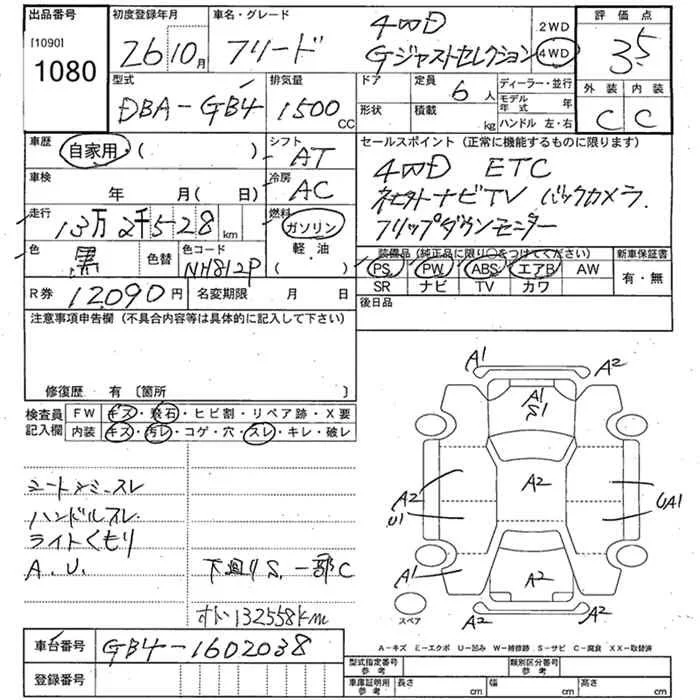 出品番号
[1090]
1080
初度登録年月
26 10月
車名・グレード
フリード 4WD
Gジャストセレクション
2WD
4WD
評価点
3.5
外装 内装
C C
型式
DBA-GB4
排気量
1500
CC
ドア
形状
定員
6人
積載
kg
ディーラー・並行
モデル年式 年
ハンドル 左・右
車歴
自家用・( )
シフト
AT
車検
年 月( 日)
冷房
AC
走行
13万2千528km
燃料
ガソリン
軽・油
( )
色
黒
色替
色コード
NH812P
R券 12,090円
名変期限 月 日
セールスポイント (正常に機能するものに限ります)
4WD ETC
ナビTV バックカメラ
フリップダウンモニター
装備品 (純正品に限り○をつけてください)
PS PW ABS エアB AW
SR ナビ TV カワ
新車保証書
有・無
後日品
注意事項申告欄 (不具合内容等は具体的に記入して下さい)
修復歴 有 〔箇所 〕
検査員記入欄
FW キズ・飛石・ヒビ割・リペア跡・X要
内装 キズ・汚レ・コゲ・穴・スレ・キレ・破レ
スレ
ハンドルスレ
ライトくもり
A.U.
下廻りS.一部C
132558km
A1
A2
A1
S1
A2
A2
U1
UA1
A1
A2
A2
A2
スペア
A-キズ E-エクボ U-凹み W-補修跡 S-サビ C-腐食 XX-取替済
車台番号 GB4-1602038
登録番号
型式指定番号
参考
類別区分番号
参考
車庫証明用
参考
長さ cm
幅 cm
高さ cm